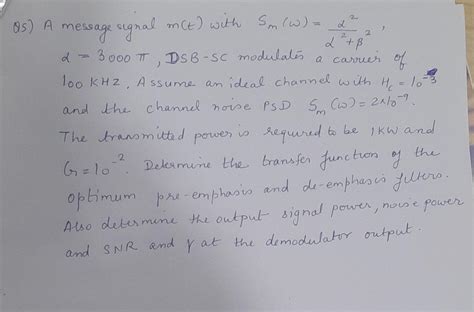 Q5) A message signal m(t) with Sm(ω) = α²/α²+β²,
α = 3000 π, DSB-SC modulates a carrier of
100 KHZ. Assume an ideal channel with Hc = 10⁻³
and the channel noise PSD Sm(ω) = 2×10⁻⁹.
The transmitted power is required to be 1KW and
G = 10⁻². Determine the transfer function of the
optimum pre-emphasis and de-emphasis filters.
Also determine the output signal power, noise power
and SNR and γ at the demodulator output.